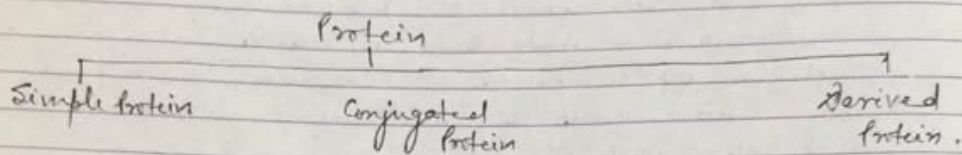 Protein
Simple Protein
Conjugated
Protein
Derived
Protein.